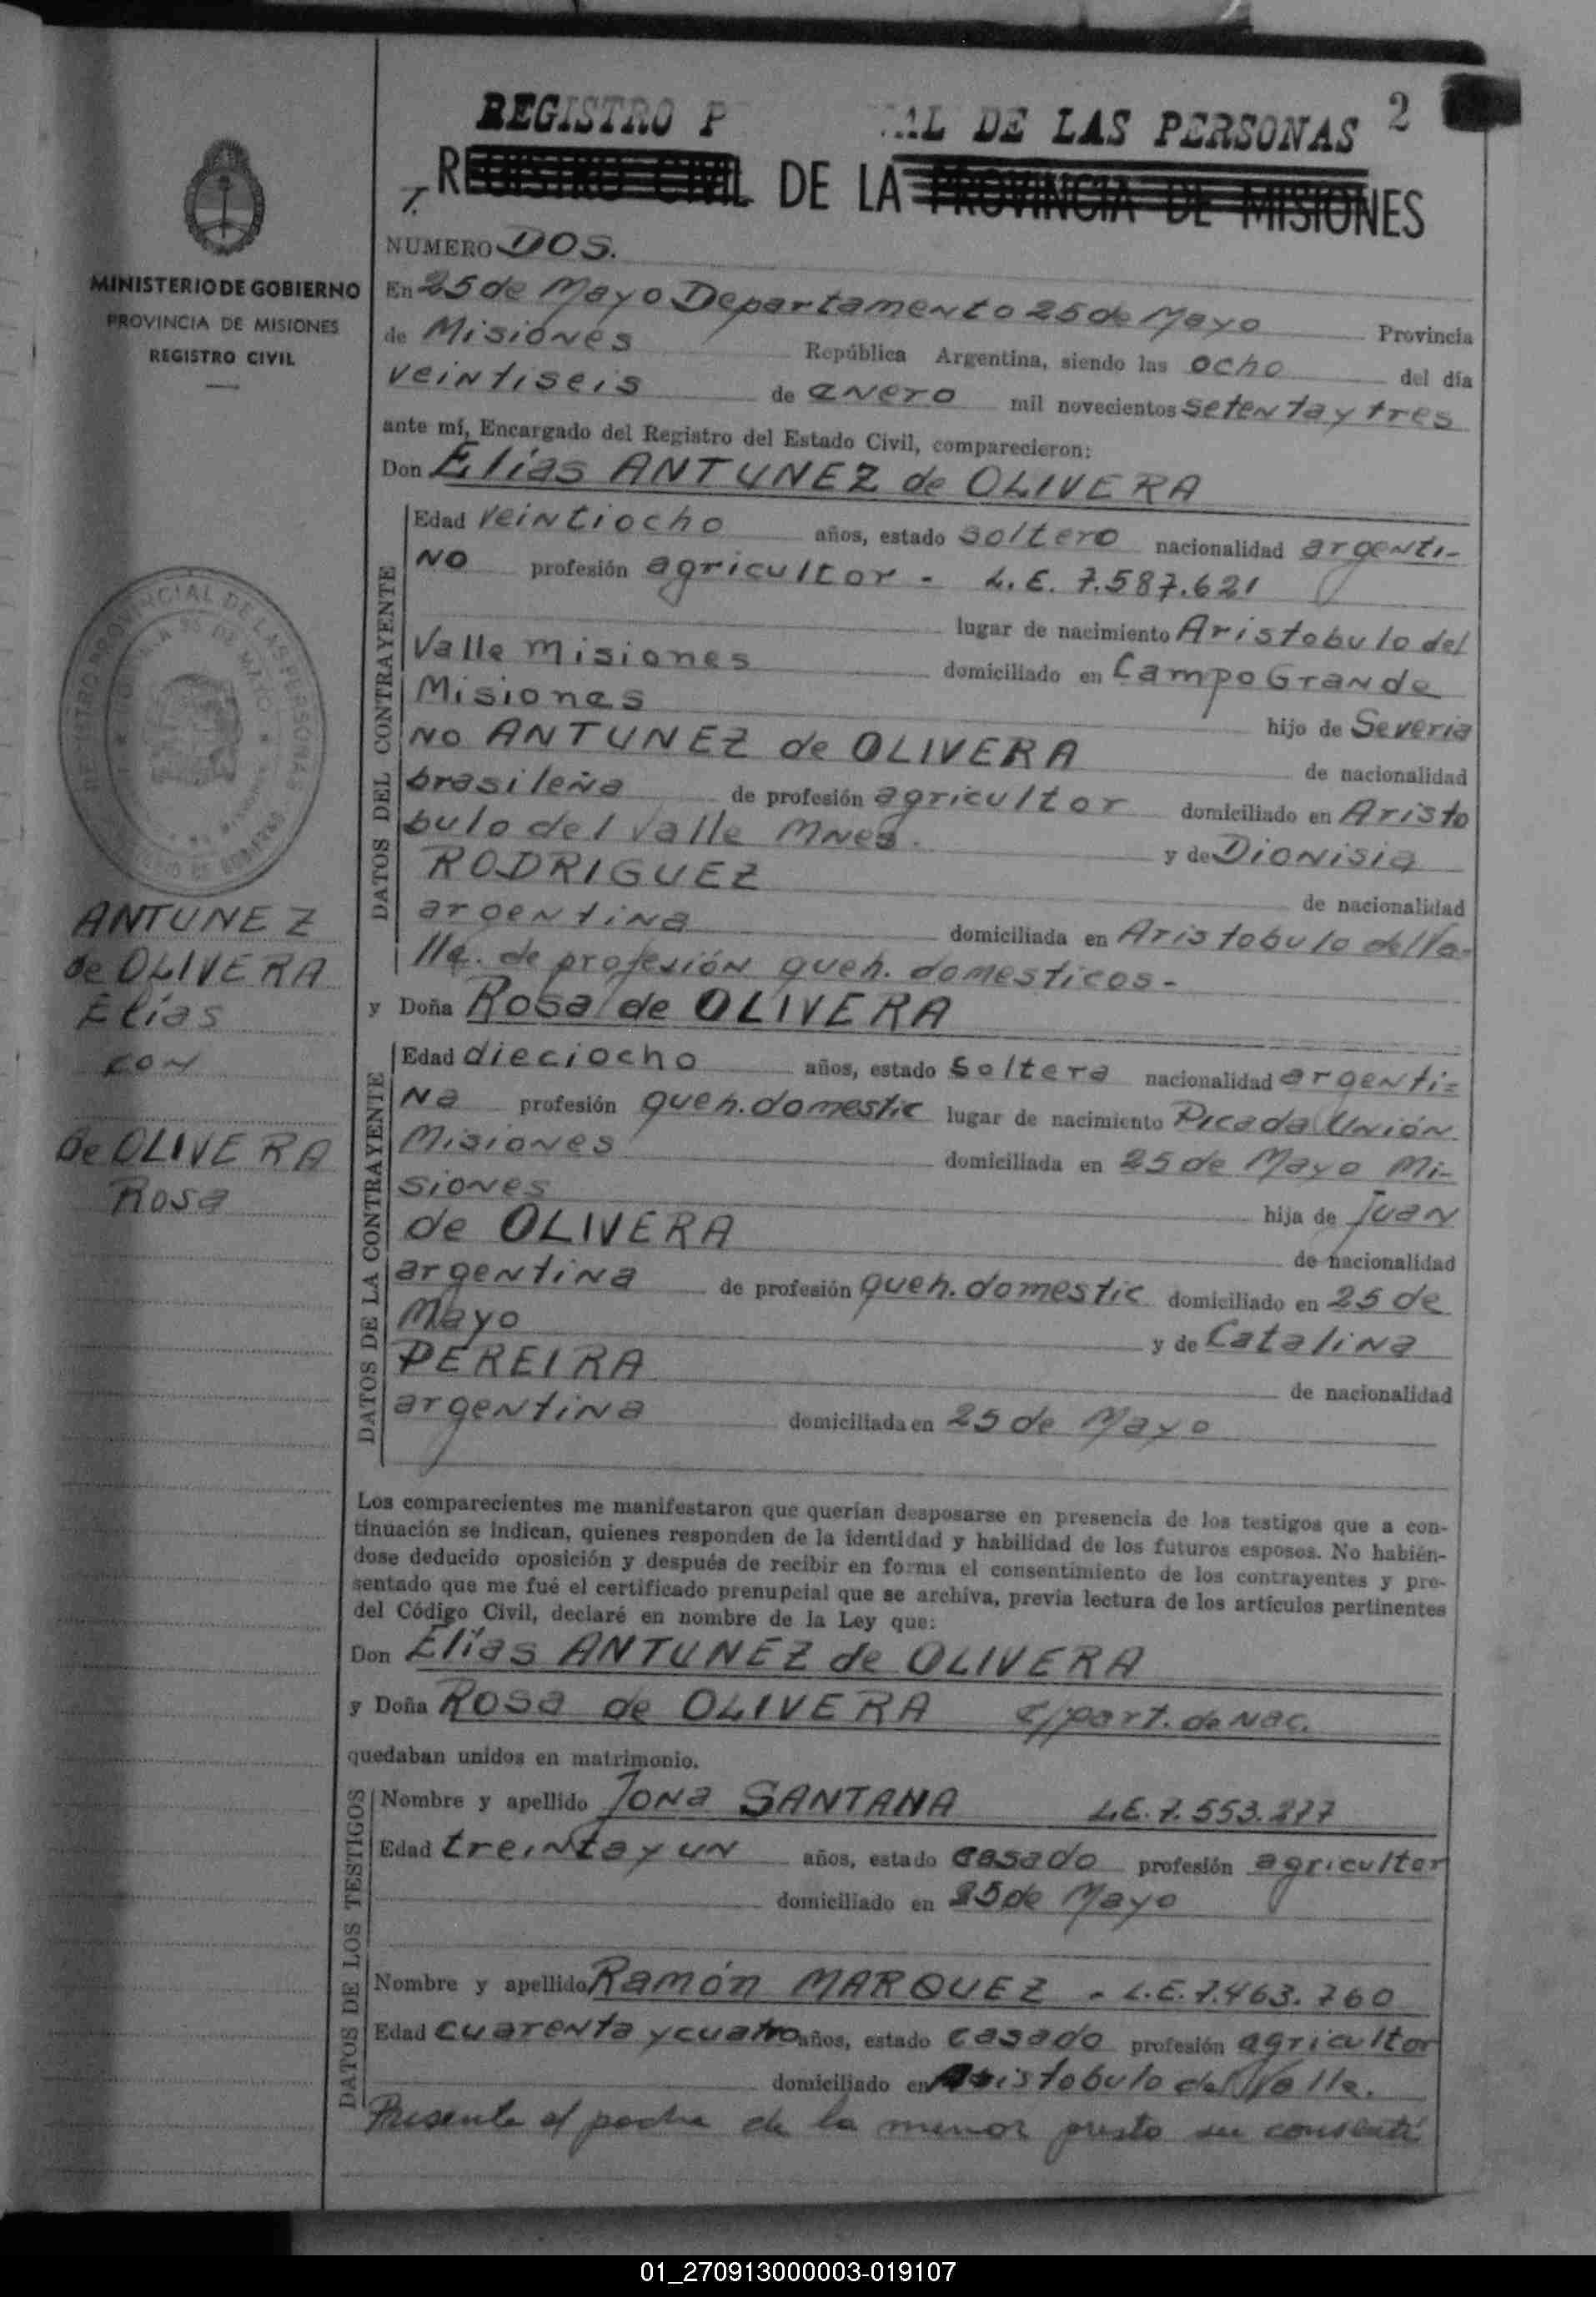 2
REGISTRO P AL DE LAS PERSONAS
REGISTRO CIVIL DE LA PROVINCIA DE MISIONES
NUMERO DOS.
MINISTERIO DE GOBIERNO
PROVINCIA DE MISIONES
REGISTRO CIVIL
En 25 de Mayo Departamento 25 de Mayo Provincia
de Misiones República Argentina, siendo las ocho del día
veintiseis de enero mil novecientos setenta y tres
ante mí, Encargado del Registro del Estado Civil, comparecieron:
Don Elías ANTUNEZ de OLIVERA
DATOS DEL CONTRAYENTE
Edad veintiocho años, estado soltero nacionalidad argenti-
no profesión agricultor - L.E. 7.587.621
lugar de nacimiento Aristobulo del
Valle Misiones domiciliado en Campo Grande
Misiones hijo de Severia
no ANTUNEZ de OLIVERA de nacionalidad
brasileña de profesión agricultor domiciliado en Aristo
bulo del Valle Mnes. y de Dionisia
RODRIGUEZ de nacionalidad
argentina domiciliada en Aristobulo del Va-
lle. de profesión queh. domesticos-
ANTUNEZ
de OLIVERA
Elías
con
de OLIVERA
Rosa
y Doña Rosa de OLIVERA
DATOS DE LA CONTRAYENTE
Edad dieciocho años, estado soltera nacionalidad argenti=
na profesión queh. domestic lugar de nacimiento Picada Unión
Misiones domiciliada en 25 de Mayo Mi-
siones hija de Juan
de OLIVERA de nacionalidad
argentina de profesión queh. domestic domiciliado en 25 de
Mayo y de Catalina
PEREIRA de nacionalidad
argentina domiciliada en 25 de Mayo
Los comparecientes me manifestaron que querían desposarse en presencia de los testigos que a con-
tinuación se indican, quienes responden de la identidad y habilidad de los futuros esposos. No habién-
dose deducido oposición y después de recibir en forma el consentimiento de los contrayentes y pre-
sentado que me fué el certificado prenupcial que se archiva, previa lectura de los artículos pertinentes
del Código Civil, declaré en nombre de la Ley que:
Don Elías ANTUNEZ de OLIVERA
y Doña Rosa de OLIVERA c/part. de Nac.
quedaban unidos en matrimonio.
DATOS DE LOS TESTIGOS
Nombre y apellido Jona SANTANA L.E. 7.553.277
Edad treinta y un años, estado casado profesión agricultor
domiciliado en 25 de Mayo
Nombre y apellido Ramón MARQUEZ - L.E. 7.463.760
Edad cuarenta y cuatro años, estado casado profesión agricultor
domiciliado en Aristobulo del Valle.
Presente el padre de la menor presto su consenti
01_270913000003-019107